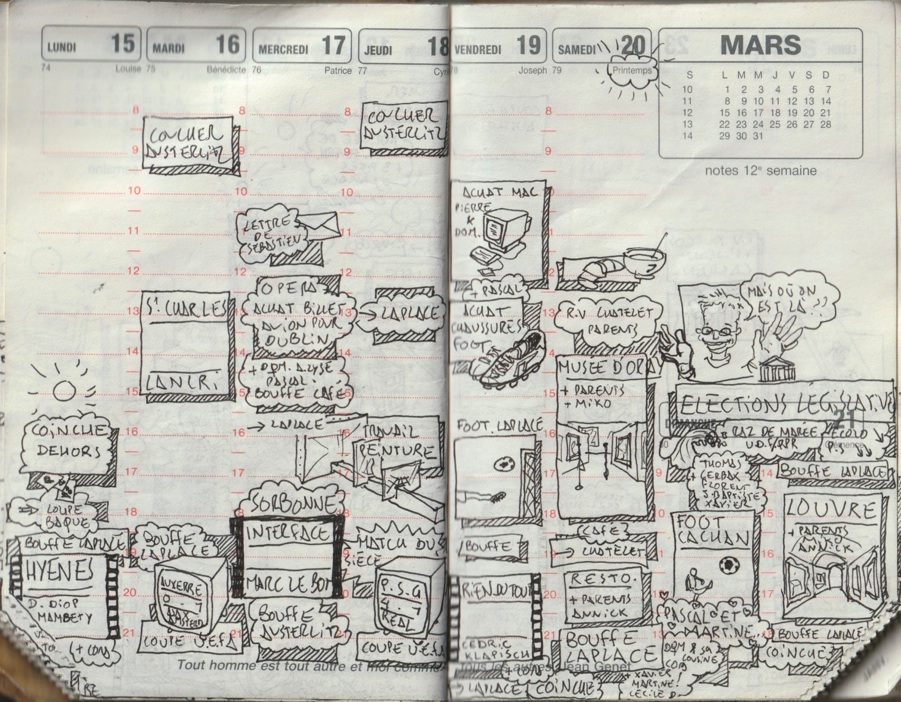 LUNDI 15
74 Louise
COINCHE
DEHORS
→ LOUPE
BAQUE
BOUFFE LAPLACE
HYENES
D. DIOP
MAMBETY
MARDI 16
75 Bénédicte
8
9
10
11
12
13
14
15
16
17
18
20
21
COUCHER
AUSTERLITZ
ST CHARLES
LANCRI
BOUFFE
LAPLACE
AUXERRE
COUPE U.E.F.A
MERCREDI 17
76 Patrice
LETTRE
DE
SEBASTIEN
OPERA
ACHAT BILLET
AVION POUR
DUBLIN
PASCAL
BOUFFE CAFE
→ LAPLACE
SORBONNE
INTERFACE
MARC LE BOT
BOUFFE
AUSTERLITZ
JEUDI 18
77
COUCHER
AUSTERLITZ
→ LAPLACE
TRAVAIL
PEINTURE
MATCH DU
SIECLE
P.S.G
4-1
REAL
COUPE U.E.F.A
Tout homme est tout autre et moi comme
VENDREDI 19
Joseph
ACHAT MAC
PIERRE
&
DOM.
+ PASCAL
ACHAT
CHAUSSURES
FOOT.
FOOT. LAPLACE
BOUFFE
RIEN DU TOUT
CEDRIC
KLAPISCH
→ LAPLACE
COINCHE
SAMEDI 20
79 Printemps
R.V CHATELET
PARENTS
MUSEE D'ORSAY
+ PARENTS
+ MIKO
CAFE
→ CHATELET
RESTO.
+ PARENTS
ANNICK
BOUFFE
LAPLACE
tous les autres Jean Genet
MARS
S L M M J V S D
10 1 2 3 4 5 6 7
11 8 9 10 11 12 13 14
12 15 16 17 18 19 20 21
13 22 23 24 25 26 27 28
14 29 30 31
notes 12e semaine
MAIS OÙ ON
EST LÀ ??
ELECTIONS LEGISLATIVES
21
RAZ DE MAREE
U.D.F/RPR
ECOLO
P.S
THOMAS
GERBAX
FLORENT
J. BAPTISTE
XAVIER
FOOT
CACHAN
PASCAL ET
MARTINE
DOM & SA
COUSINE
+ XAVIER
MARTINE
CECILE D.
BOUFFE LAPLACE
LOUVRE
+ PARENTS
ANNICK
BOUFFE LAPLACE
COINCHE